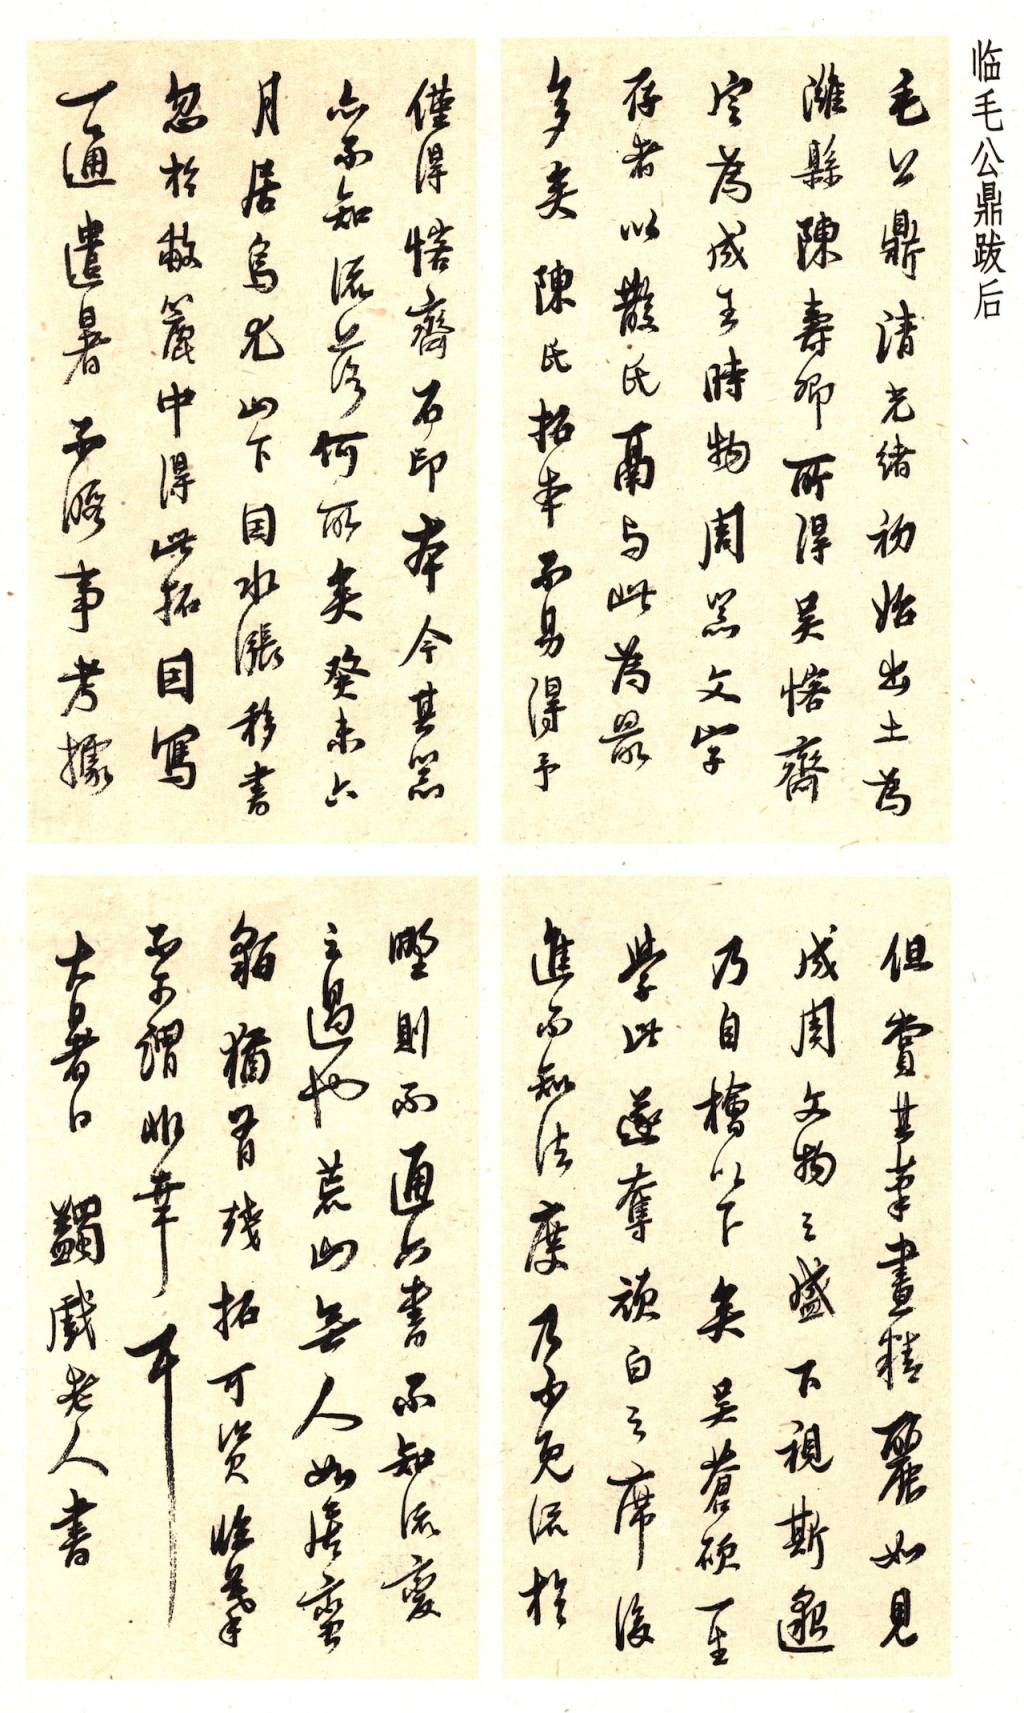 临毛公鼎跋后
毛公鼎清光绪初始出土为
潍县陈寿卿所得吴愙斋
定为成王时物周器文字
存者以散氏鬲与此为最
多矣陈氏拓本不易得予
仅得愙斋石印本今其器
亦不知流落何所矣癸未六
月居乌尤山下因水涨移书
忽于敝簏中得此拓因写
一通遣暑不暇事考据
但赏其笔画精丽如见
成周文物之盛下视斯邈
乃自桧以下矣吴苍硕一生
学此遂夺顽白之席后
进不知法度乃不免流于
野则不通六书不知流变
之过也荒山无人如居蛮
貊犹有残拓可资临摹
不可谓非幸耳
大暑日 蠲戏老人书